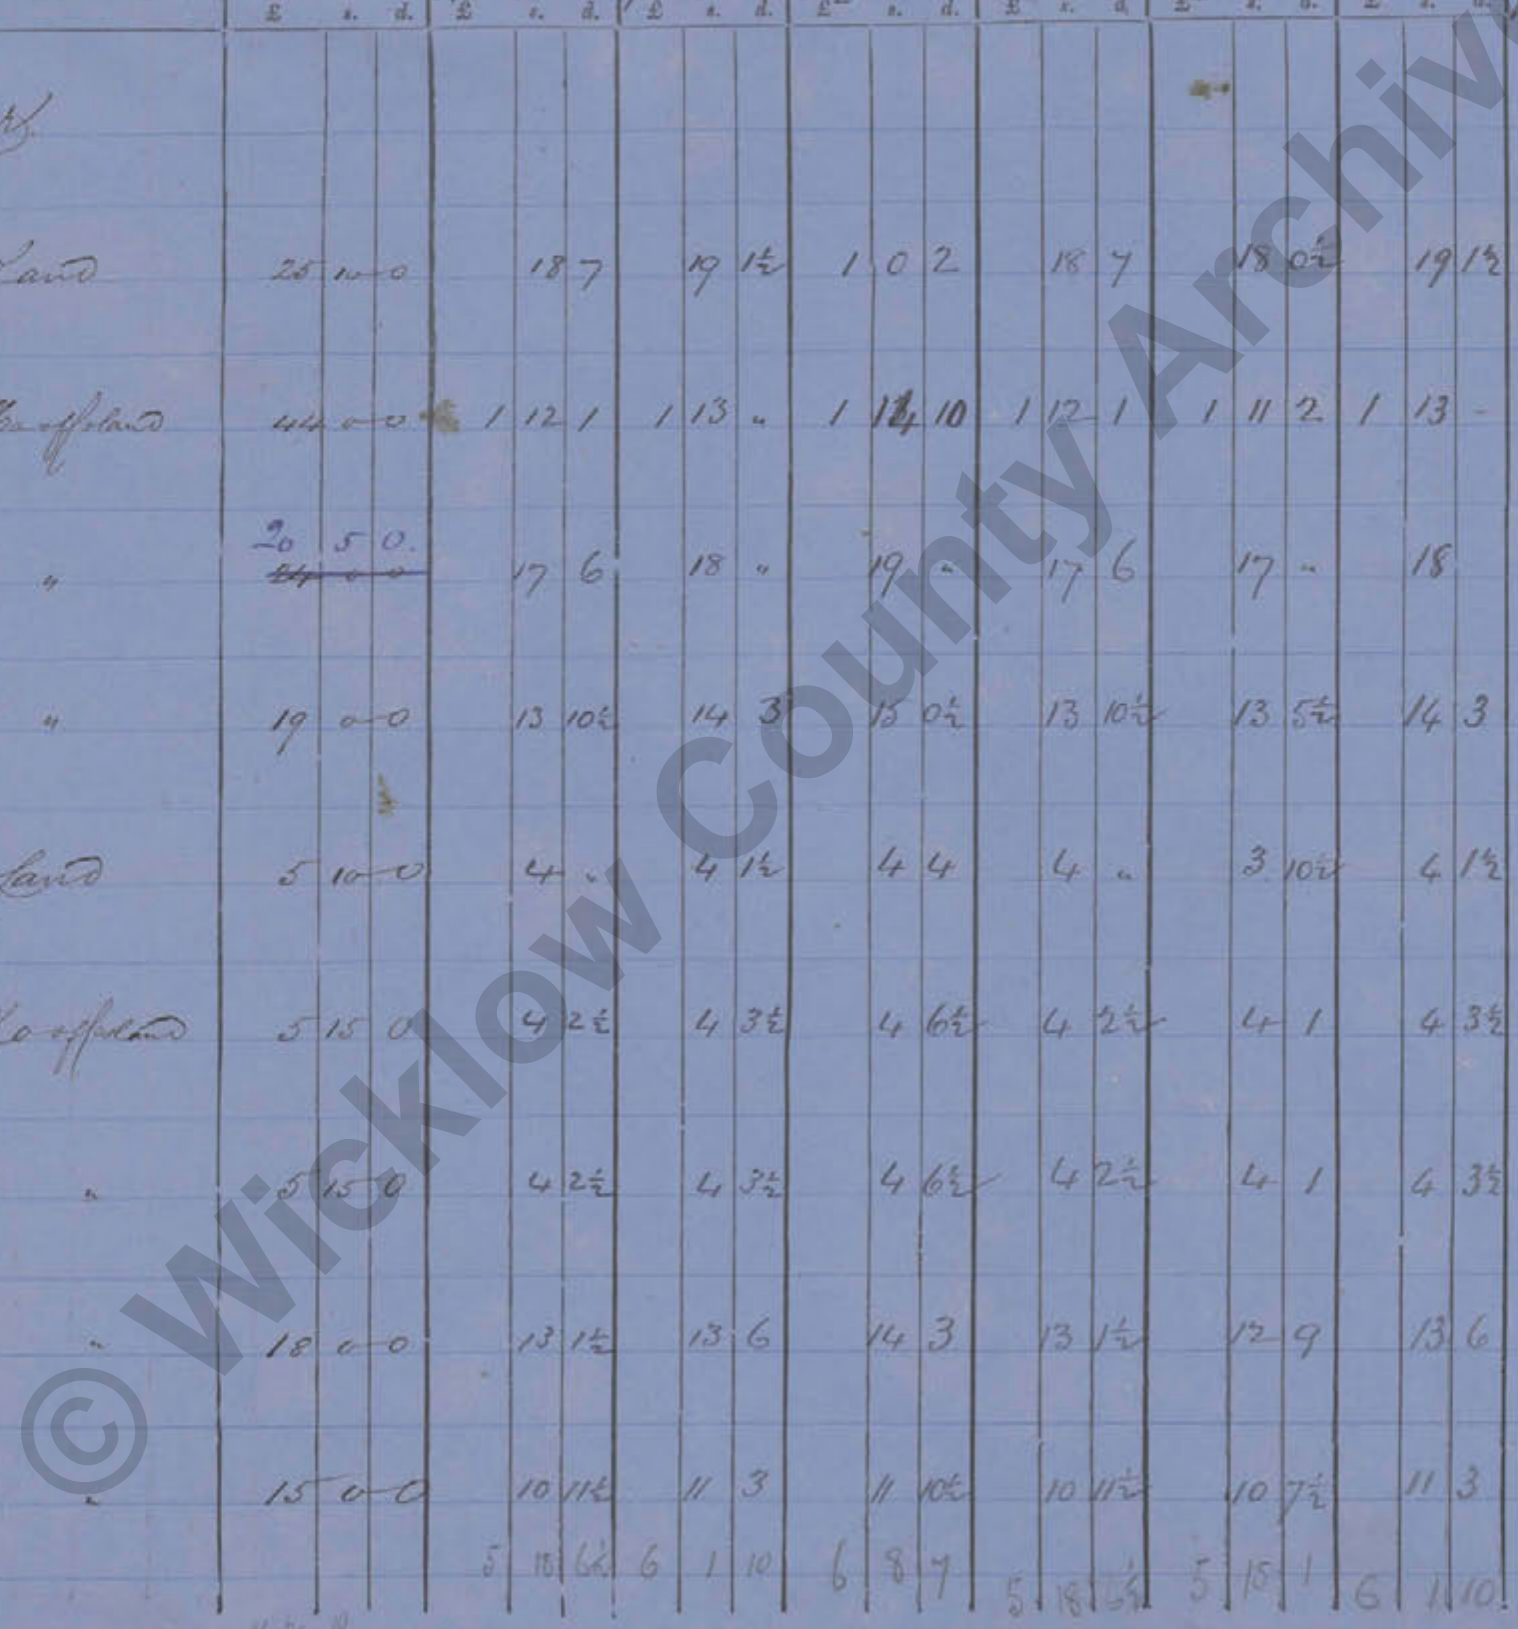 £ s. d. £ s. d. £ s. d. £ s. d. £ s. d. £ s. d. £ s. d.
Land 25 10 0 18 7 19 1½ 1 0 2 18 7 18 0½ 19 1½
Ho offs land 44 0 0 1 12 1 1 13 " 1 14 10 1 12 1 1 11 2 1 13 -
20 5 0.
" 24 0 0 17 6 18 " 19 " 17 6 17 " 18
" 19 0 0 13 10½ 14 3 15 0½ 13 10½ 13 5½ 14 3
Land 5 10 0 4 " 4 1½ 4 4 4 " 3 10½ 4 1½
Ho offs land 5 15 0 4 2½ 4 3½ 4 6½ 4 2½ 4 1 4 3½
" 5 15 0 4 2½ 4 3½ 4 6½ 4 2½ 4 1 4 3½
" 18 0 0 13 1½ 13 6 14 3 13 1½ 12 9 13 6
" 15 0 0 10 11½ 11 3 11 10½ 10 11½ 10 7½ 11 3
5 18 6½ 6 1 10 6 8 7 5 18 6½ 5 15 1 6 1 10
© Wicklow County Archiv